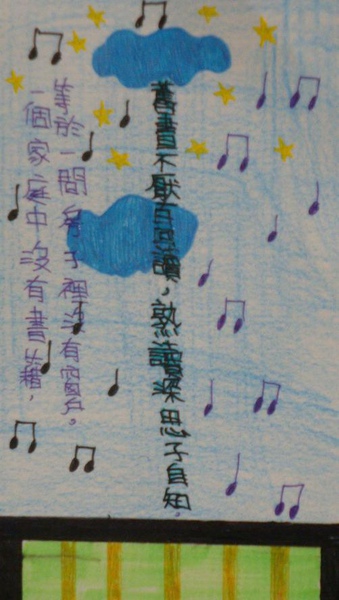 一個家庭中沒有書籍，
等於一間房子裡沒有窗戶。
舊書不厭百回讀，熟讀深思子自知。